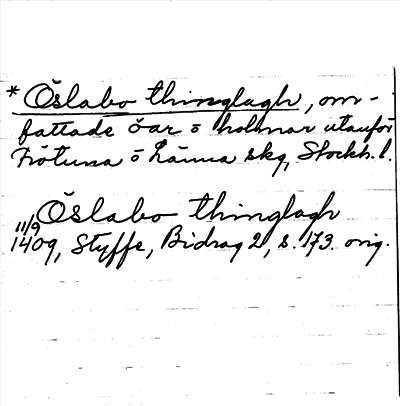 * Öslabo thinglagh, om-
fattade öar o holmar utanför
Frötuna o Länna skg, Stockh. l.
Öslabo thinglagh
11/9
1409, Styffe, Bidrag 2, s. 173. orig.